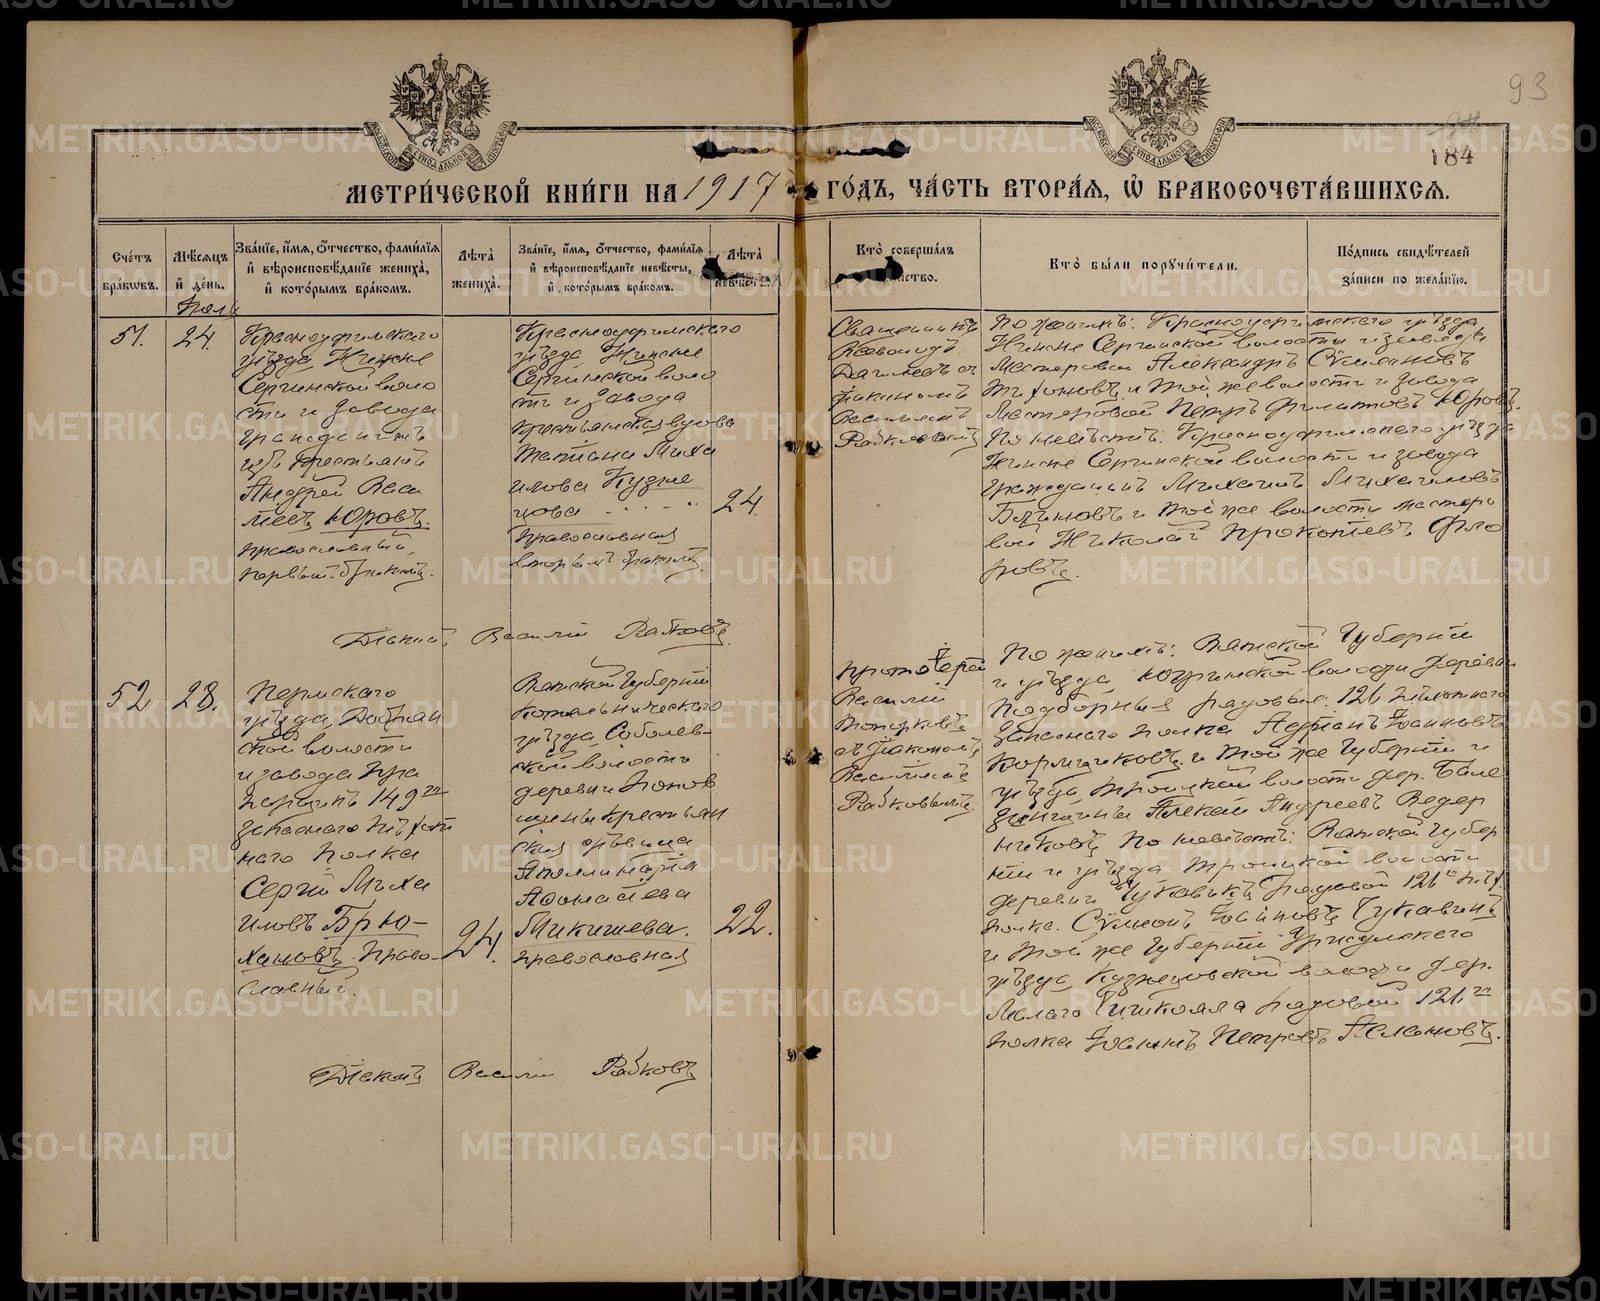 93
184
МЕТРИ́ЧЕСКОЙ КНИ́ГИ НА 1917 ГО́ДЪ, ЧА́СТЬ ВТОРА́Я, Ѡ БРАКОСОЧЕТА́ВШИХСЯ.
Сче́тъ бра́кѡвъ.
Мѣ́сяцъ и́ де́нь.
Зва́нїе, и́мя, ѻ́тчество, фами́лїя и́ вѣроисповѣ́данїе жениха̀, и́ кото́рымъ бра́комъ.
Лѣта̀ жениха̀.
Зва́нїе, и́мя, ѻ́тчество, фами́лїя и́ вѣроисповѣ́данїе невѣ́сты, и́ кото́рымъ бра́комъ.
Лѣта̀ невѣ́сты.
Кто̀ соверша́лъ
Кто̀ бы́ли поручи́тели.
По́дпись свидѣ́телей за́писи по жела́нїю.
51.
24.
Красноуфимскаго
уѣзда Нижне
Сергинской воло
сти и завода
гражданинъ
изъ крестьянъ
Андрей Васи
льевъ Юровъ.
православный,
первымъ бракомъ.
Красноуфимскаго
уѣзда Нижне
Сергинской воло
сти и завода
крестьянская вдова
Татіана Миха
илова Кузне
цова
православная
вторымъ бракомъ.
24.
Священникъ
Всеволодъ
съ
діакономъ
Василіемъ
По женихѣ: Красноуфимскаго уѣзда
Нижне Сергинской волости и завода
мастеровой Александръ Сѵмеоновъ
Тихоновъ и той же волости и завода
мастеровой Петръ Филиповъ Юровъ.
По невѣстѣ: Красноуфимскаго уѣзда
Нижне Сергинской волости и завода
гражданинъ Михаилъ Михаиловъ
и той же волости мастеро
вой Николай Прокопьевъ Фло
ровъ.
Діаконъ Василій Рабковъ.
52
28.
Пермскаго
уѣзда, Добрян
ской волости
и завода Пра
порщикъ 149го
запаснаго пѣхот
наго полка
Сергій Миха
иловъ Брю-
хановъ. Право-
славный.
24.
Вятской губерніи
Котельническаго
уѣзда, Соболев-
ской волости
деревни Попов
щины крестьян
ская дѣвица
Аполлинарія
Афонасіева
Микишева.
православная
22.
Протоіерей
Василій
Топорковъ
съ діакономъ
Василіемъ
Рабковымъ.
По женихѣ: Вятской губерніи
и уѣзда волости деревни
Подборныя рядовые 126 пѣхотнаго
запаснаго полка Іоанновъ
Кормщиковъ и той же губерніи и
уѣзда, Троицкой волости дер.
Алексѣй Андреевъ Ведер
никовъ По невѣстѣ: Вятской губер
ніи и уѣзда Троицкой волости
деревни рядовой 126го пѣх.
полка Сѵмеонъ Іоанновъ Чукавинъ
и той же губерніи Уржумскаго
уѣзда Кузнецовской волости дер.
Малаго рядовой 126го
полка Іоаннъ Петровъ
Діаконъ Василій Рабковъ
METRIKI.GASO-URAL.RU